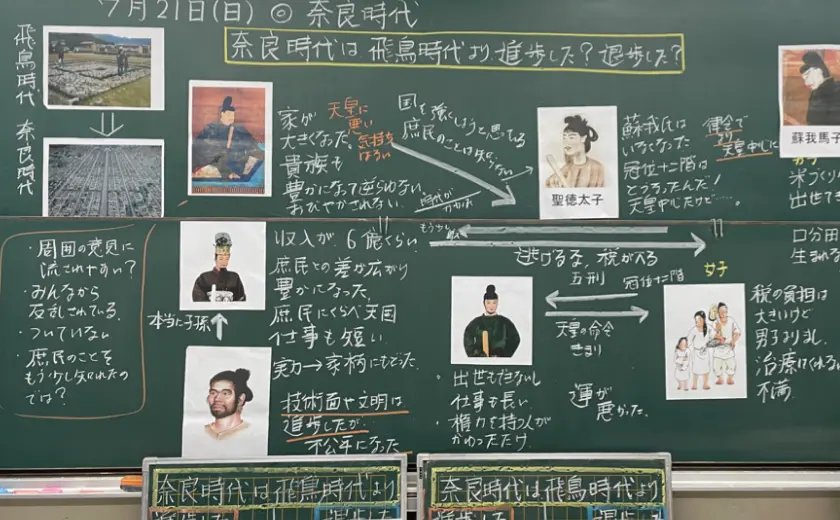 7月21日(日) ◎ 奈良時代
奈良時代は飛鳥時代より、進歩した?退歩した?
飛鳥時代
奈良時代
家が
大きくなった。
貴族も
豊かになって逆らわない。
おびやかされない。
天皇に
悪い
気持ち
はない
国を強くしようと思ってる
庶民のことは
聖徳太子
蘇我氏は
いなくなった
冠位十二階は
どうなったんだ!
天皇中心だけど…。
律令で
より
天皇中心に
蘇我馬子
米づくり
出世でき
口分田
生まれ
・周囲の意見に
流されやすい?
・みんなから
反乱されている。
・ついていない
・庶民のことを
もう少し知れたの
では?
本当に子孫
収入が、6億くらい
庶民との差が広がり
豊かになった
庶民にくらべ天国
仕事も短い
実力→家柄にもどった。
技術面や文明は
進歩したが、
不公平になった
もう少し
逃げるな、税がへる
五刑
冠位十二階
天皇の命令
きまり
女子
・出世もできないし
仕事も長い
・権力を持つ人が
かわっただけ
運が
悪かった。
税の負担は
大きいけど
男子よりまし。
治療はくれない
不満
奈良時代は飛鳥時代より
進歩した
退歩した
奈良時代は飛鳥時代より
進歩した
退歩した